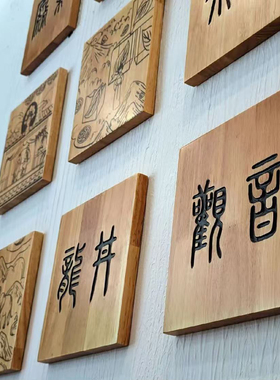 龍井
觀音